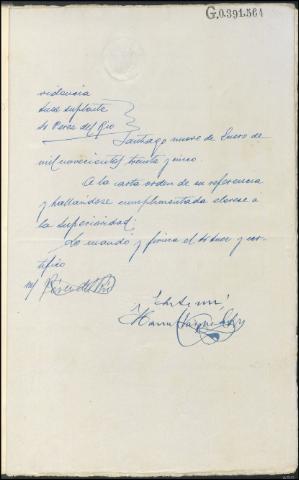 G.0.391.561
videncia
Juez suplente
Sr Perez del Rio
Santiago nueve de Enero de
mil novecientos treinta y cinco
A la carta orden de su referencia
y hallandose cumplimentada elevese a
la Superioridad:
Lo mando y firma el Sr Juez y cer-
tifico
Perez del Rio
Ante mi,